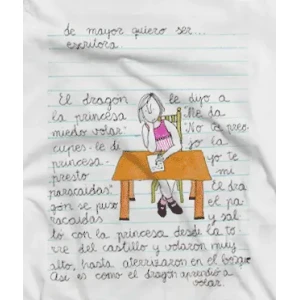 de mayor quiero ser...
escritora.
El dragón le dijo a
la princesa "Me da
miedo volar". "No te preo-
cupes- le dijo la
princesa- yo te
presto mi
paracaídas" El dra
gón se puso el pa
racaídas y sal
tó con la princesa desde la to
rre del castillo y volaron muy
alto, hasta aterrizaron en el bosque
Así es como el dragón aprendió a
volar.